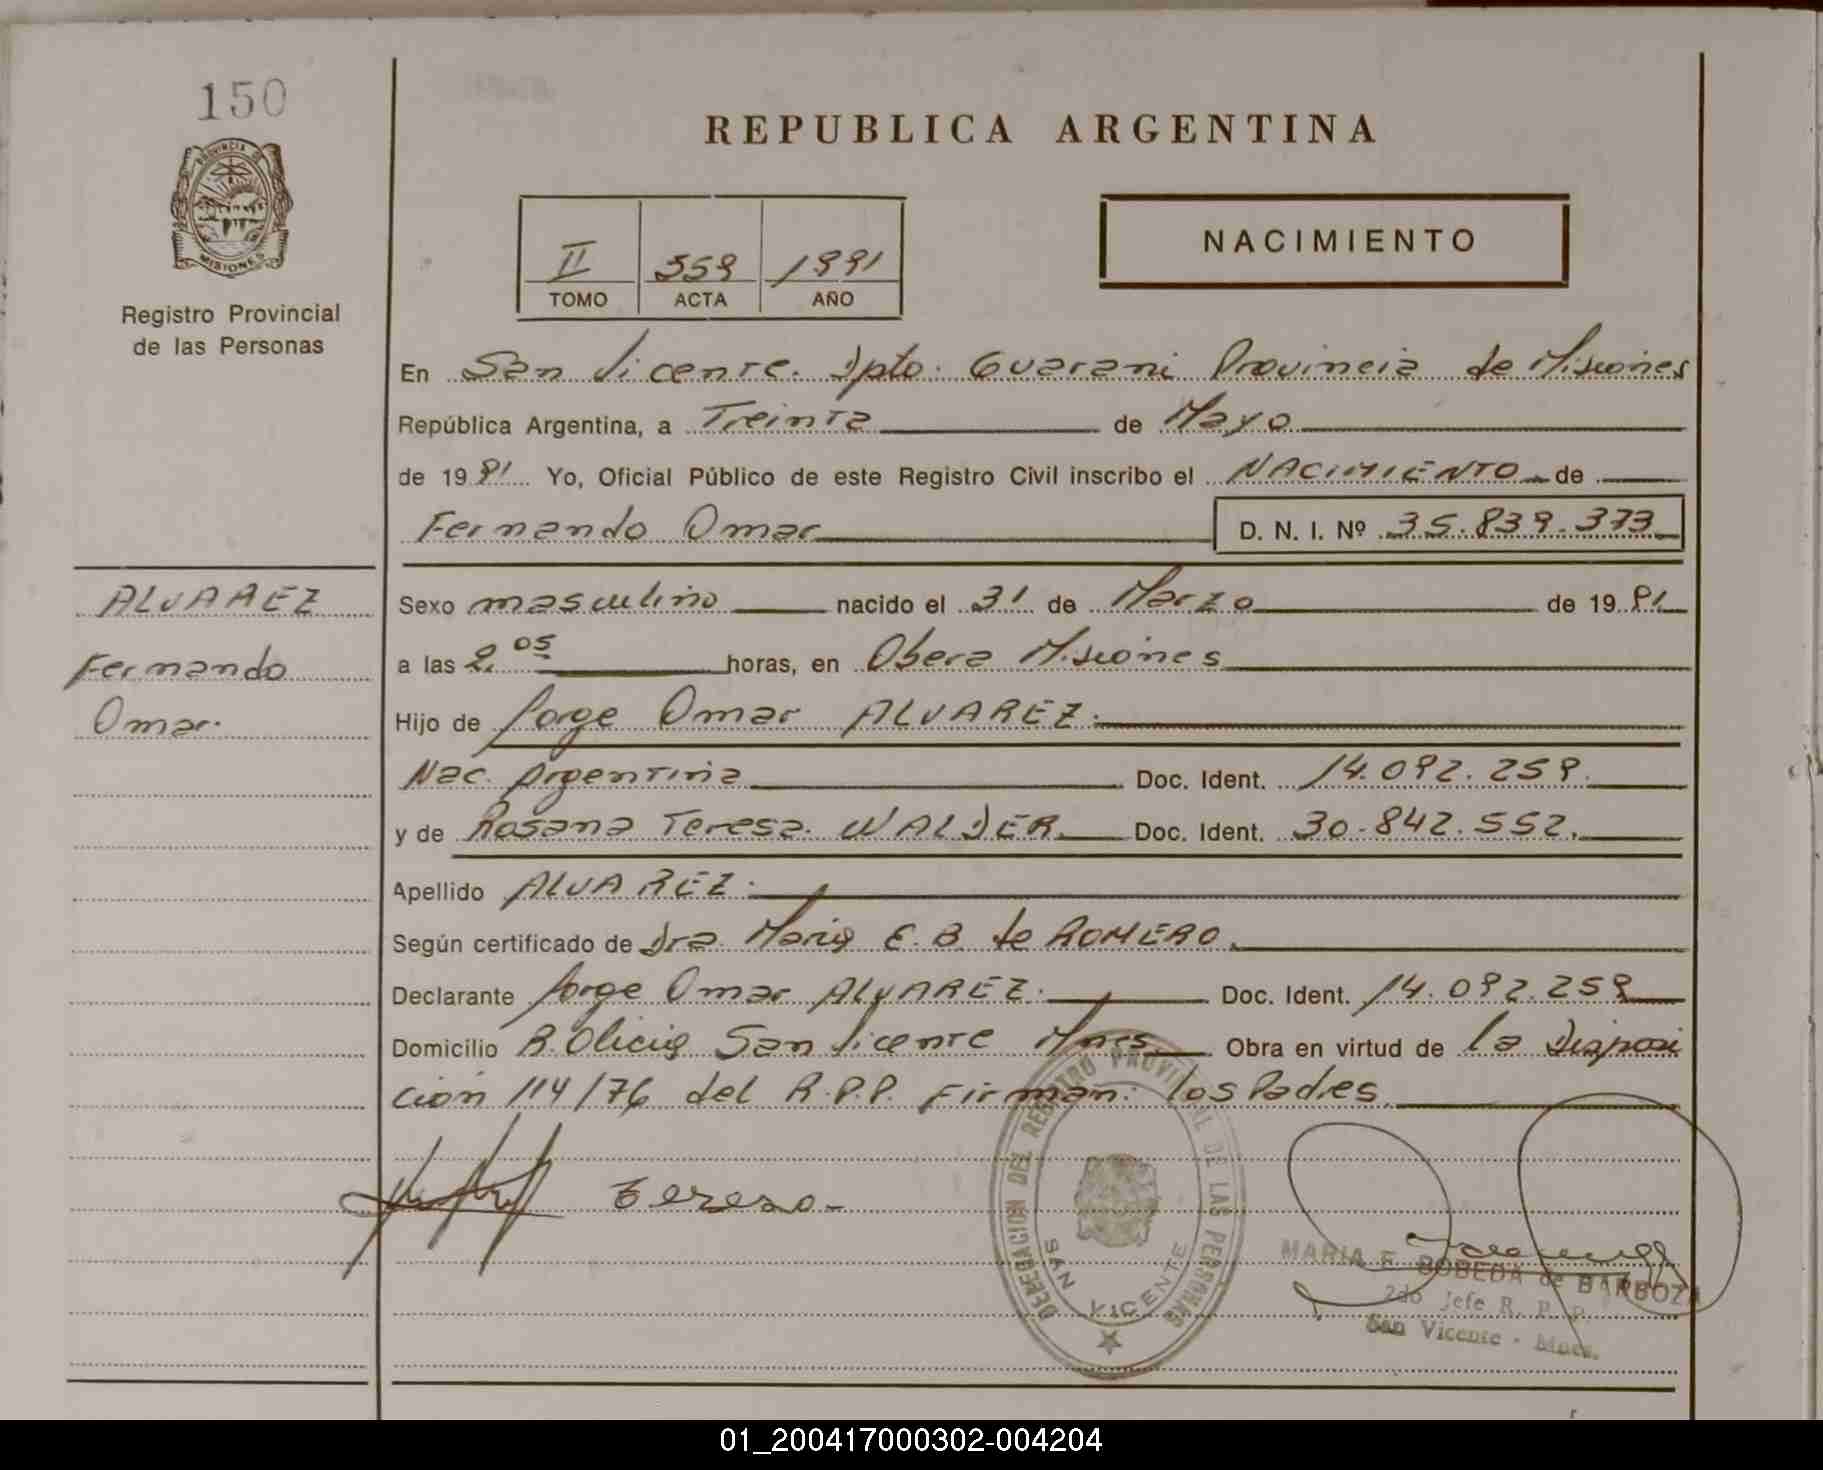 150
PROVINCIA DE
MISIONES
Registro Provincial
de las Personas
REPUBLICA ARGENTINA
II 359 1991
TOMO ACTA AÑO
NACIMIENTO
En San Vicente. Dpto. Guarani Provincia de Misiones
República Argentina, a Treinta de Mayo
de 1991 Yo, Oficial Público de este Registro Civil inscribo el NACIMIENTO de
Fernando Omar D. N. I. Nº 35.839.373
ALVAREZ
Fernando
Omar.
Sexo masculino nacido el 31 de Marzo de 1991
a las 2,05 horas, en Obera Misiones
Hijo de Jorge Omar ALVAREZ.
Nac. Argentina Doc. Ident. 14.092.259.
y de Rosana Teresa WALDER Doc. Ident. 30.842.552.
Apellido ALVAREZ.
Según certificado de Dra. Maria E. B. de ROMERO.
Declarante Jorge Omar ALVAREZ. Doc. Ident. 14.092.259
Domicilio B. Olicia San Vicente Mnes Obra en virtud de la Disposi
ción 114/76 del R.P.P. Firman: los Padres.
DELEGACION DEL REGISTRO PROVINCIAL DE LAS PERSONAS
SAN VICENTE
MARIA E. BOBEDA de BARBOZA
2do Jefe R. P. P.
San Vicente - Mnes.
01_200417000302-004204